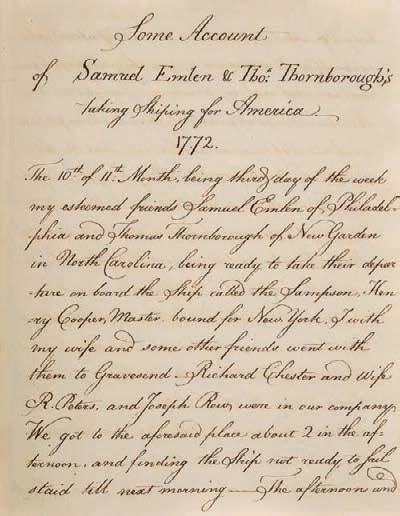 Some Account
of Samuel Emlen & Thos. Thornborough's
taking Shiping for America
1772.
The 10th. of 11th. Month, being third day of the week
my esteemed friends Samuel Emlen of, Philadel-
phia and Thomas Thornborough of New Garden
in North Carolina, being ready to take their depar
ture on board the Ship called the Sampson, Hen-
ry Cooper, Master, bound for New York, I with
my wife and some other friends went with
them to Gravesend – Richard Chester and Wife
R. Peters, and Joseph Row, were in our company,
We got to the aforesaid place about 2 in the af-
ternoon, and finding the Ship not ready to sail
staid till next morning — The afternoon and